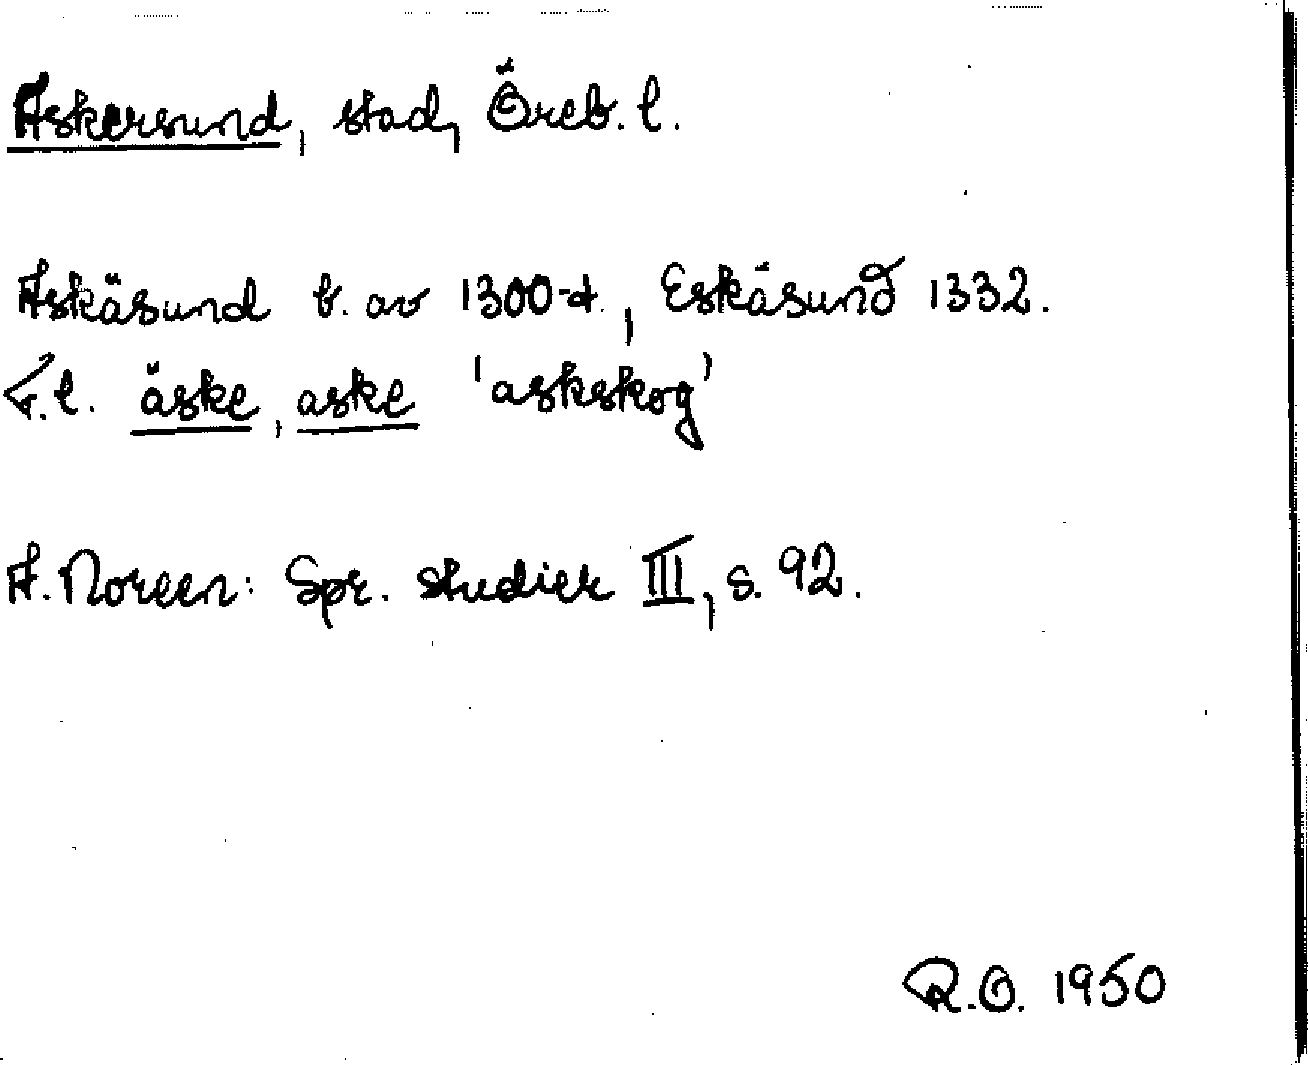 Askersund, stad, Öreb. l.
Askäsund b. av 1300-t., Eskäsund 1332.
F.l. äske, aske 'askskog'
A. Noreen: Spr. studier III, s. 92.
R.O. 1950